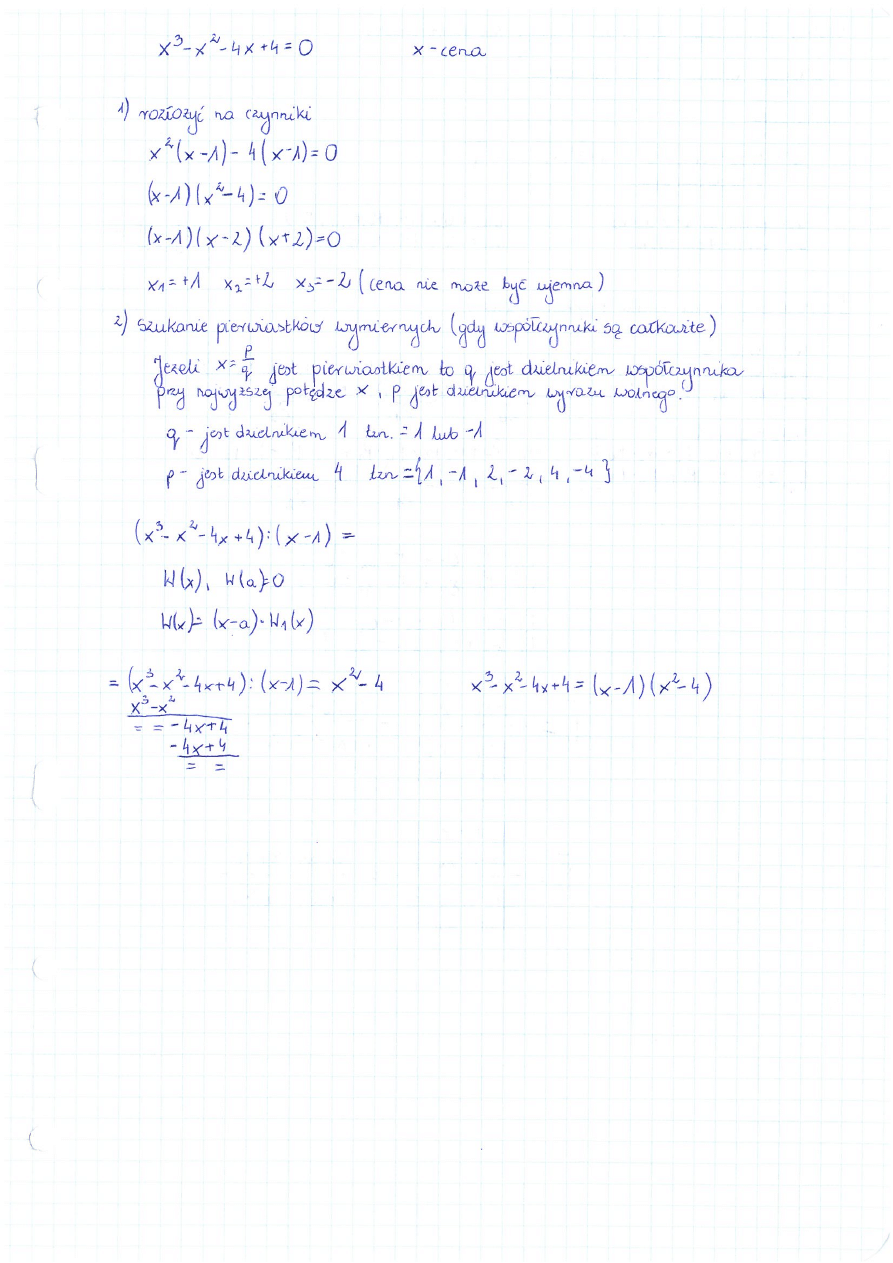 x³-x²-4x+4=0 x-cena
1) rozłożyć na czynniki
x²(x-1)-4(x-1)=0
(x-1)(x²-4)=0
(x-1)(x-2)(x+2)=0
x₁=+1 x₂=+2 x₃=-2 (cena nie może być ujemna)
2) szukanie pierwiastków wymiernych (gdy współczynniki są całkowite)
Jeżeli x=p/q jest pierwiastkiem to q jest dzielnikiem współczynnika
przy najwyższej potędze x, p jest dzielnikiem wyrazu wolnego.
q - jest dzielnikiem 1 tzn. = 1 lub -1
p - jest dzielnikiem 4 tzn = {1, -1, 2, -2, 4, -4}
(x³-x²-4x+4):(x-1) =
W(x), W(a)=0
W(x)=(x-a)·W₁(x)
= (x³-x²-4x+4):(x-1) = x²-4 x³-x²-4x+4=(x-1)(x²-4)
x³-x²
= = -4x+4
-4x+4
= =